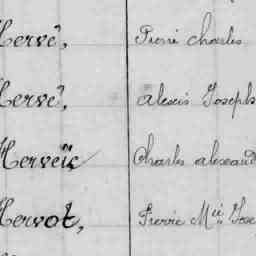 Hervé, Pierre Charles
Hervé, Alexis Joseph
Herveïc Charles Alexand
Hervot, Pierre Mie Jose